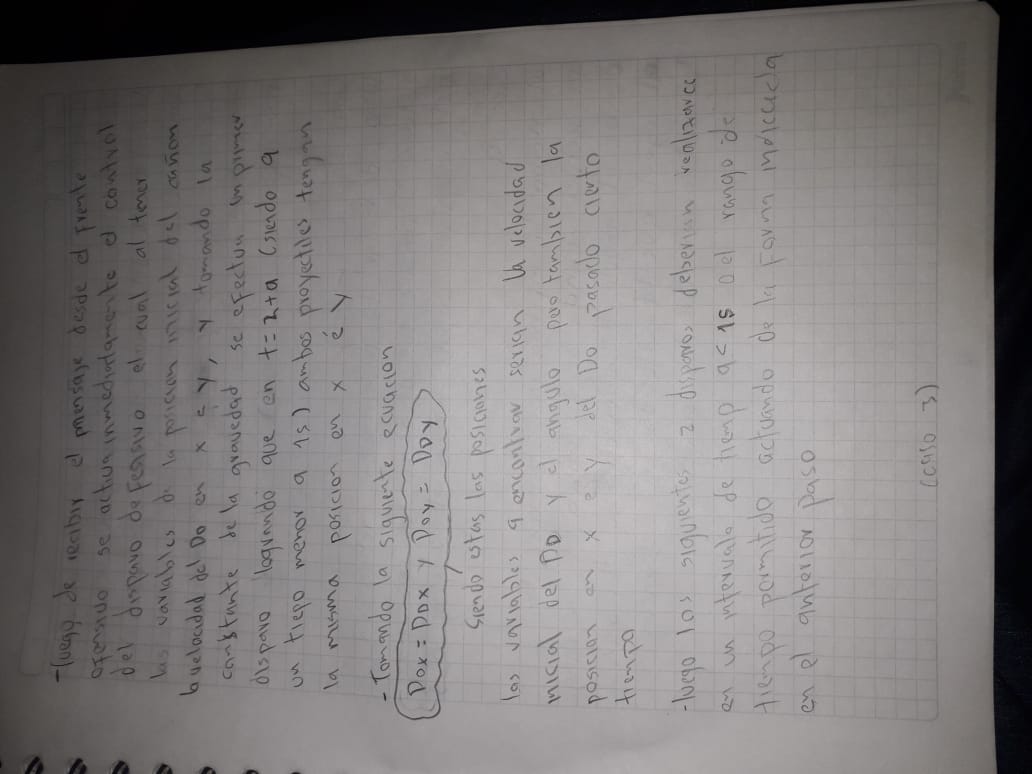 -luego de recibir el mensaje desde el frente
ofensivo se activa inmediatamente el control
del disparo defensivo el cual al tener
las variables de la posicion inicial del cañon
b velocidad del Do en x e y, y tomando la
constante de la gravedad se efectua un primer
disparo logrando que en t=2+a (siendo a
un tiepo menor a 1s) ambos proyectiles tengan
la misma posicion en x é y
-Tomando la siguiente ecuacion
Dox = DDX y Doy = DDy
siendo estas las posiciones
las variables a encontrar serian la velocidad
inicial del DD y el angulo pero tambien la
posicion en x e y del Do pasado cierto
tiempo
-luego los siguientes 2 disparos deberian realizarce
en un intervalo de tiemp a<1s o el rango de
tiempo permitido actuando de la forma indicada
en el anterior paso
(caso 3)